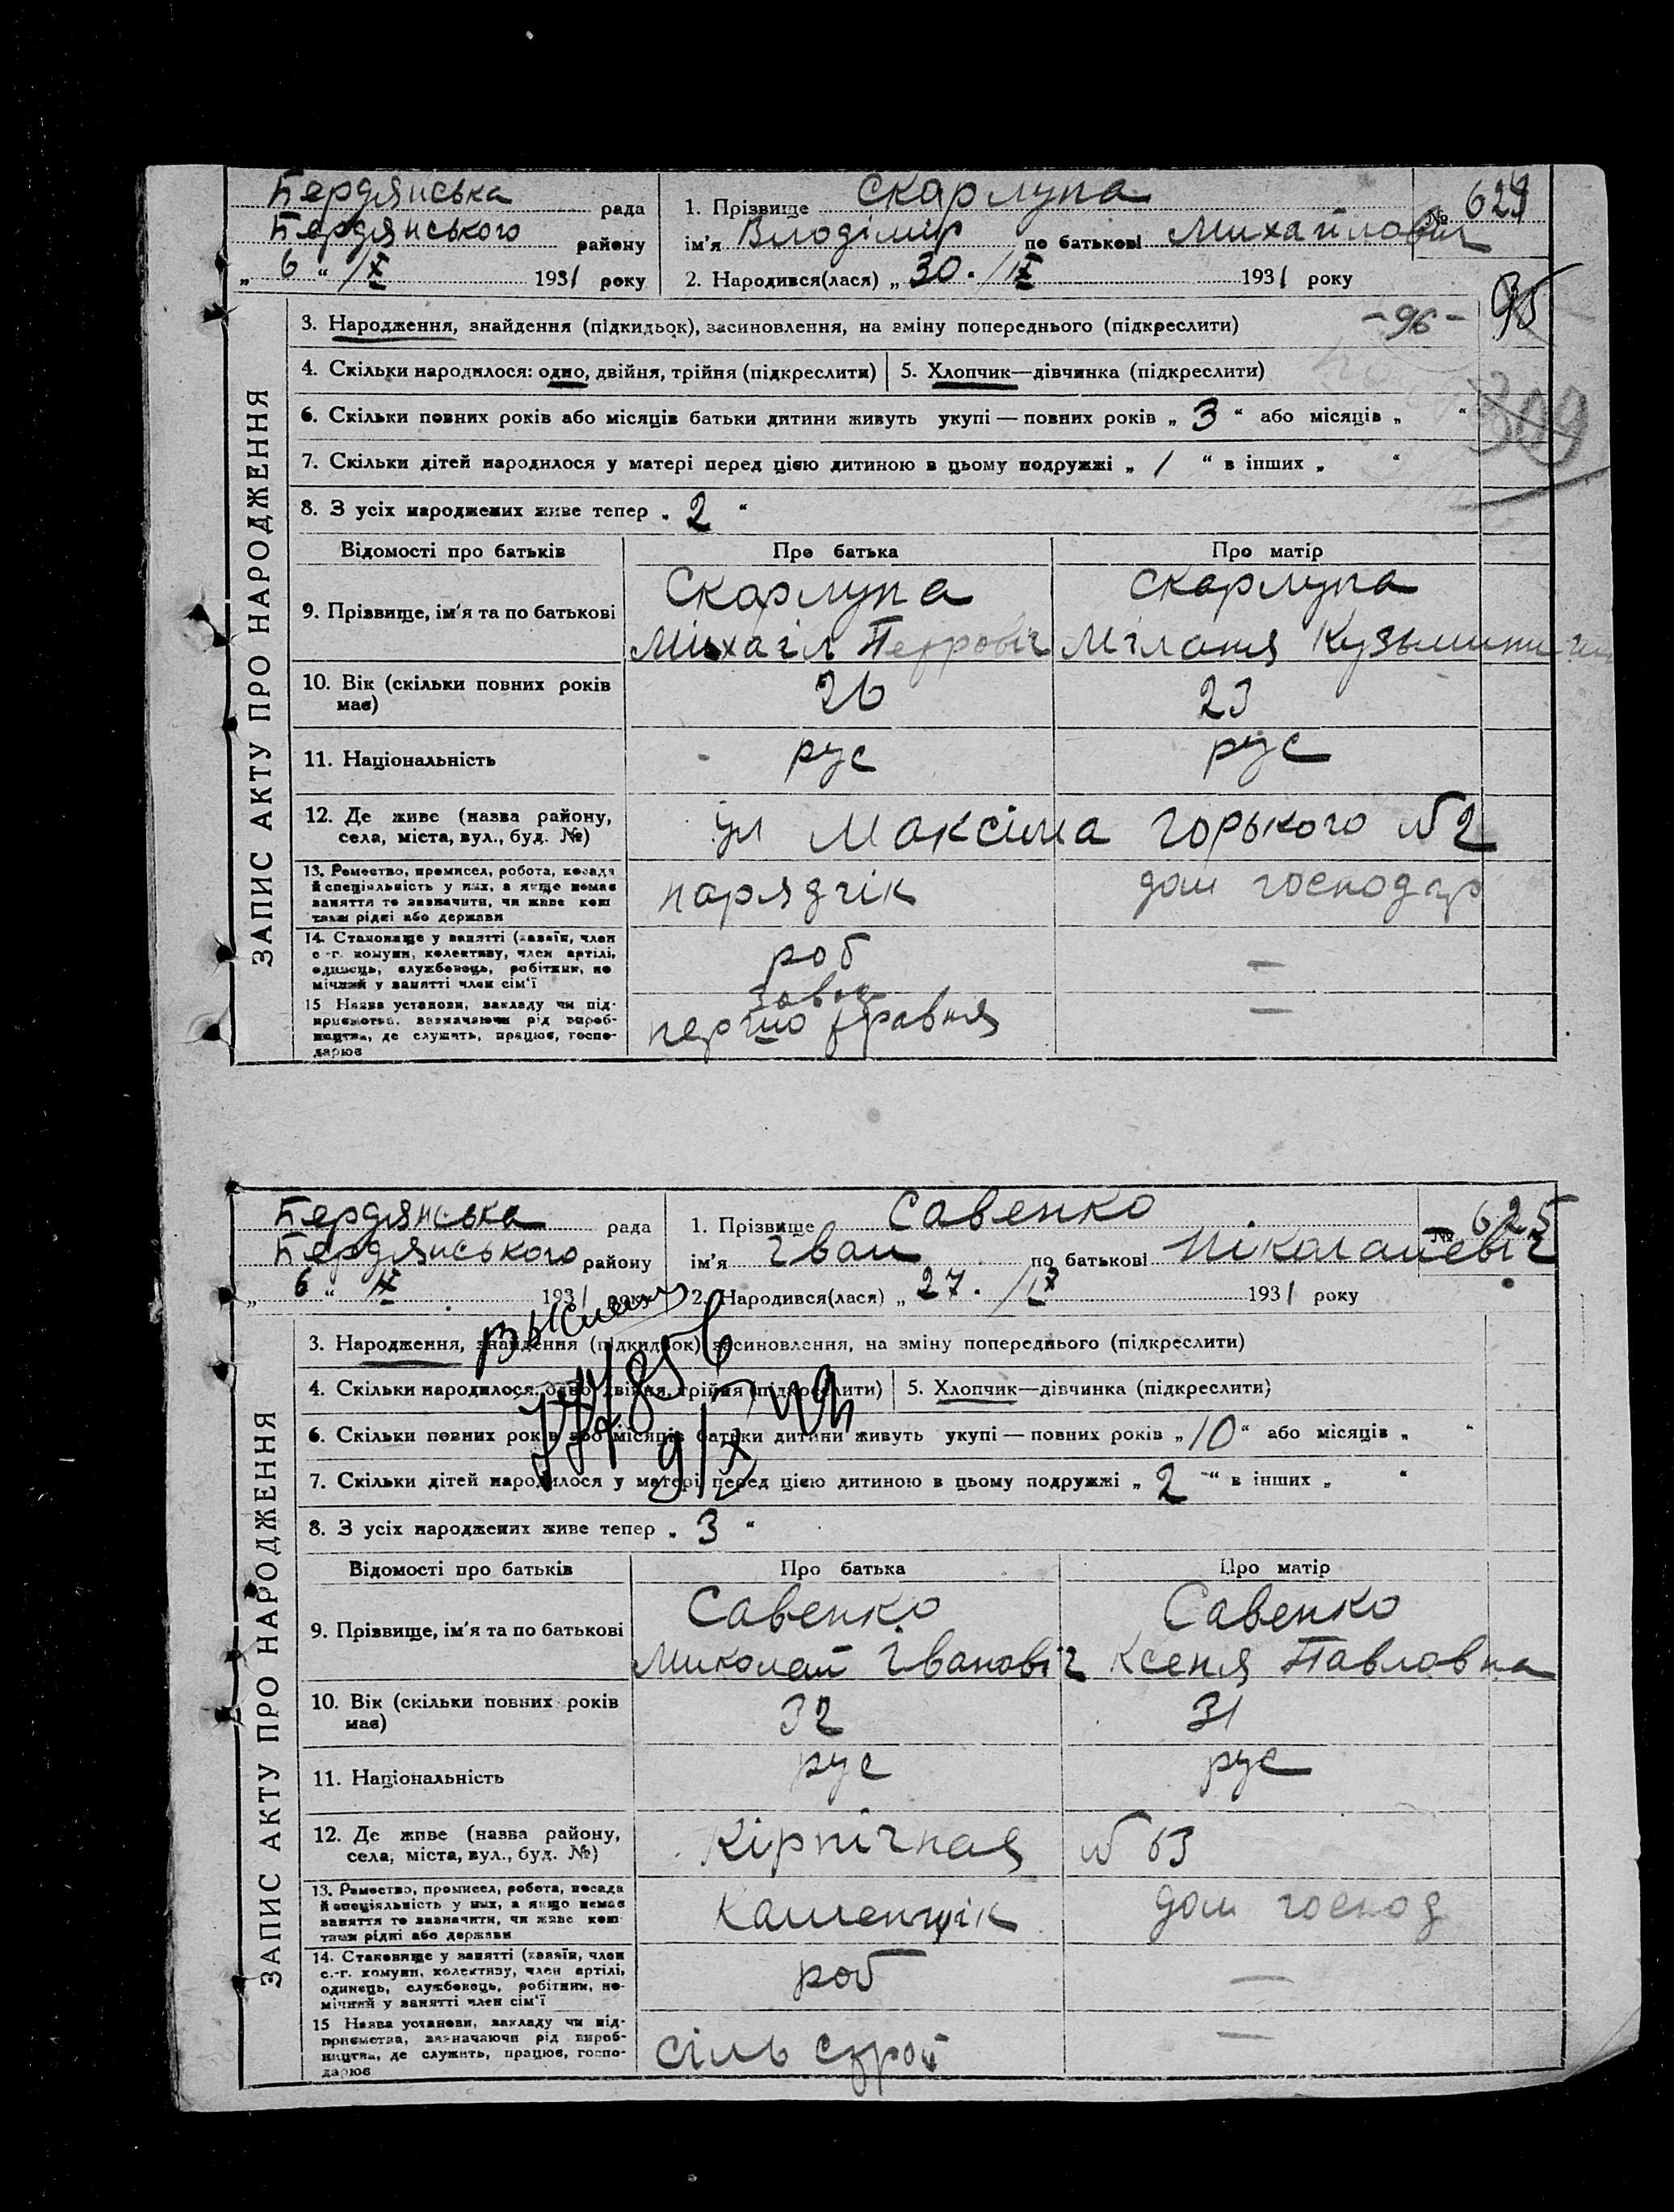 ЗАПИС АКТУ ПРО НАРОДЖЕННЯ
Бердянська рада
Бердянського району
„ 6 “ /X 1931 року
1. Прізвище Скарлупа
№
ім'я Володімір по батькові Михайлович
2. Народився(лася) „ 30 . /IX 1931 року
95
3. Народження, знайдення (підкидьок), засиновлення, на зміну попереднього (підкреслити) - 96 -
4. Скільки народилося: одно, двійня, трійня (підкреслити) 5. Хлопчик—дівчинка (підкреслити)
309
6. Скільки повних років або місяців батьки дитини живуть укупі — повних років „ 3 “ або місяців „ “
7. Скільки дітей народилося у матері перед цією дитиною в цьому подружжі „ 1 “ в інших „ “
8. З усіх народжених живе тепер „ 2 “
Відомості про батьків Про батька Про матір
9. Прізвище, ім'я та по батькові
Скарлупа Скарлупа
Міхаіл Петровіч Міланія
10. Вік (скільки повних років має) 26 23
11. Національність рус рус
12. Де живе (назва району, села, міста, вул., буд. №)
ул Максіма Горького № 2
13. Ремество, промисел, робота, посада й спеціяльність у них, а якщо немає заняття то зазначити, чи живе кош тами рідні або держави
нарядчік дом господар
14. Становище у занятті (хазяїн, член с.-г. комуни, колективу, член артілі, одинець, службовець, робітник, помічний у занятті член сім'ї
роб —
15 Назва установи, закладу чи підприємства, зазначаючи рід виробництва, де служить, працює, господарює
завод —
першо травня
ЗАПИС АКТУ ПРО НАРОДЖЕННЯ
Бердянська рада
Бердянського району
„ 6 “ /X 1931 року
1. Прізвище Савенко
№ 625
ім'я Іван по батькові Ніколаневіч
2. Народився(лася) „ 27 . /IX 1931 року
3. Народження, знайдення (підкидьок) засиновлення, на зміну попереднього (підкреслити)
4. Скільки народилося: одно, двійня, трійня (підкреслити) 5. Хлопчик—дівчинка (підкреслити)
6. Скільки повних років або місяців батьки дитини живуть укупі — повних років „ 10 “ або місяців „ “
9/X
7. Скільки дітей народилося у матері перед цією дитиною в цьому подружжі „ 2 “ в інших „ “
8. З усіх народжених живе тепер „ 3 “
Відомості про батьків Про батька Про матір
9. Прізвище, ім'я та по батькові
Савенко Савенко
Миколай Івановіч Ксенія Павловна
10. Вік (скільки повних років має) 32 31
11. Національність рус рус
12. Де живе (назва району, села, міста, вул., буд. №)
Кірпічная № 63
13. Ремество, промисел, робота, посада й спеціяльність у них, а якщо немає заняття то зазначити, чи живе кош тами рідні або держави
Каменщік дом господ
14. Становище у занятті (хазяїн, член с.-г. комуни, колективу, член артілі, одинець, службовець, робітник, помічний у занятті член сім'ї
роб —
15 Назва установи, закладу чи підприємства, зазначаючи рід виробництва, де служить, працює, господарює
сіль строй —